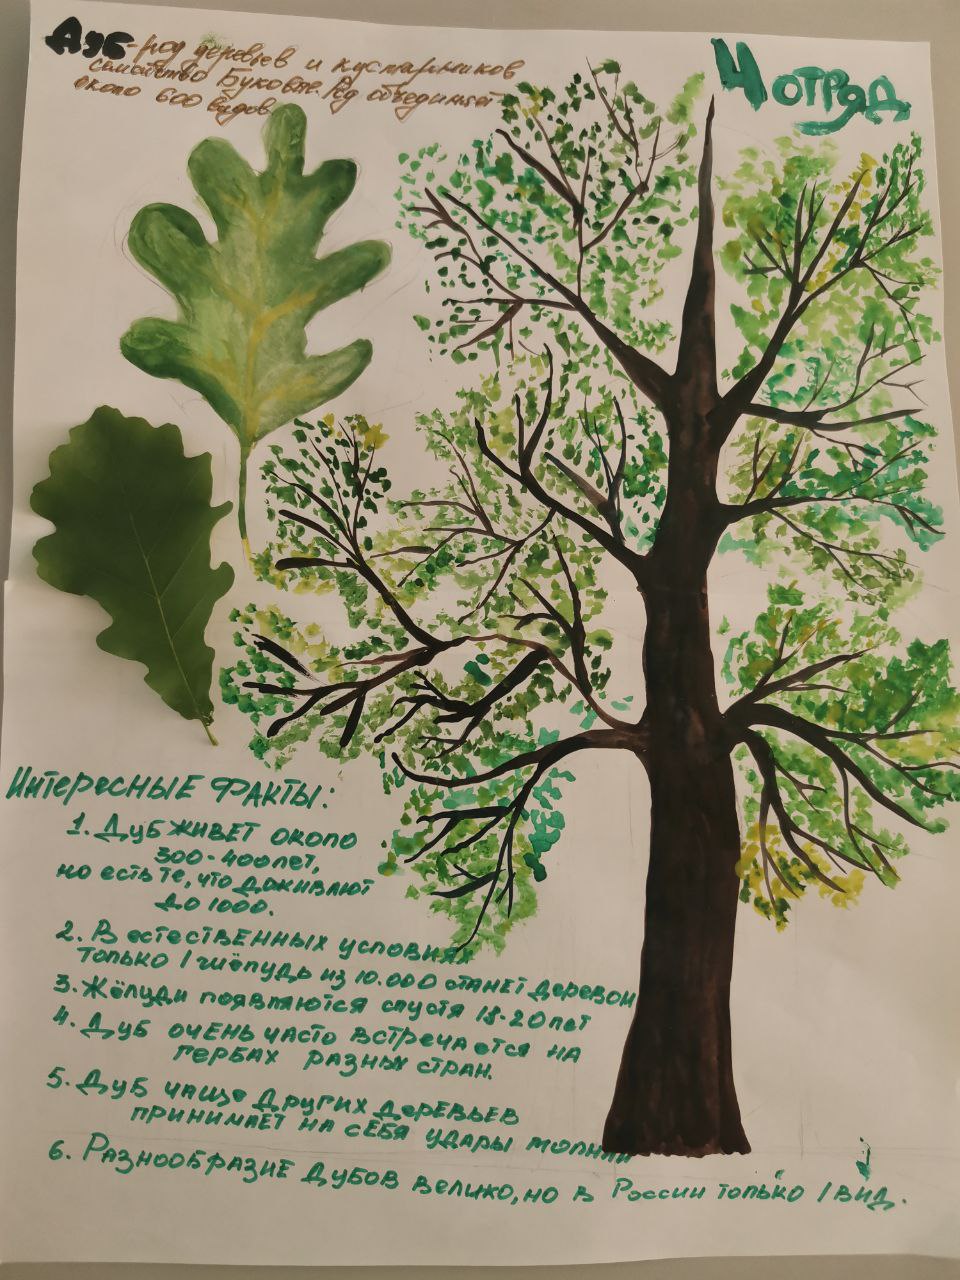 Дуб-род деревьев и кустарников
семейство Буковые. Род объединяет
около 600 видов
4 отряд
Интересные факты:
1. Дуб живет около
300-400 лет,
но есть те, что доживают
до 1000.
2. В естественных условиях
только 1 жёлудь из 10.000 станет деревом
3. Жёлуди появляются спустя 18-20 лет
4. Дуб очень часто встречается на
гербах разных стран.
5. Дуб чаще других деревьев
принимает на себя удары молнии
6. Разнообразие дубов велико, но в России только 1 вид.